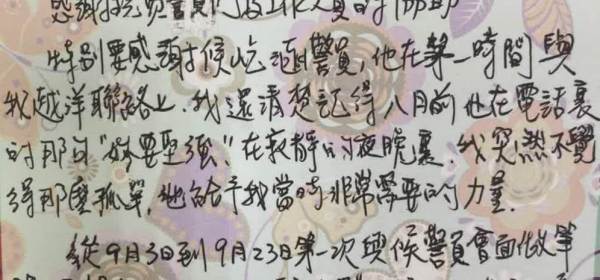 感謝
警員們及工作人員的協助
特别要感謝候屹
警員，他在第一時間與
我越洋聯絡上．我還清楚記得八月前他在電話裏
的那句“妳要堅強”在寂靜的夜晚裏．我突然不覺
得那麼孤單，他給予我當時非常需要的力量．
從9月3日到9月23日第一次與候警員會面做筆